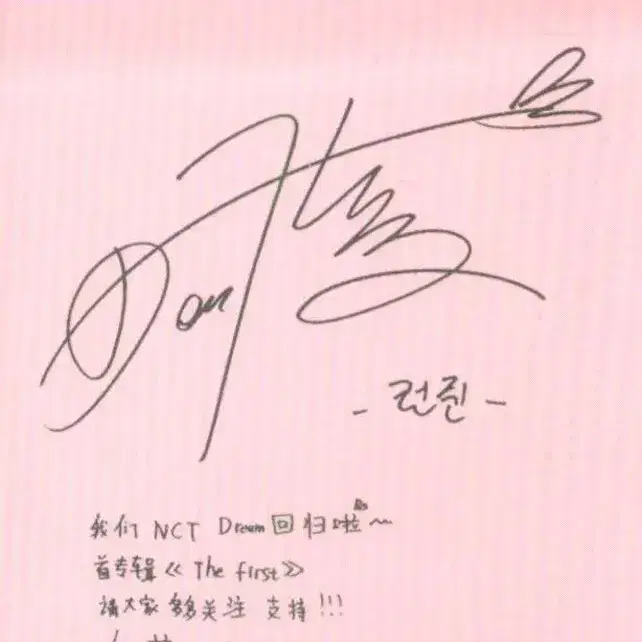 - 런쥔 -
我们 NCT Dream 回归啦~
首专辑《The first》
请大家多多关注 支持!!!